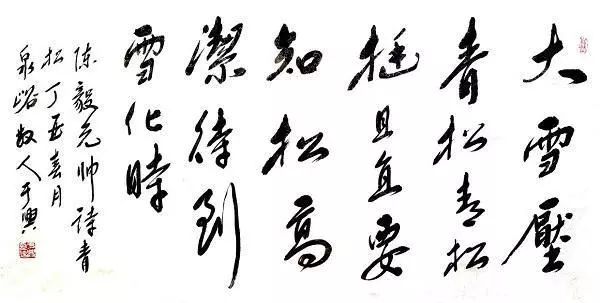 大雪壓
青松青松
挺且直要
知松高
潔待到
雪化時
陈毅元帅诗青
松丁亥春月
泉峪散人于興